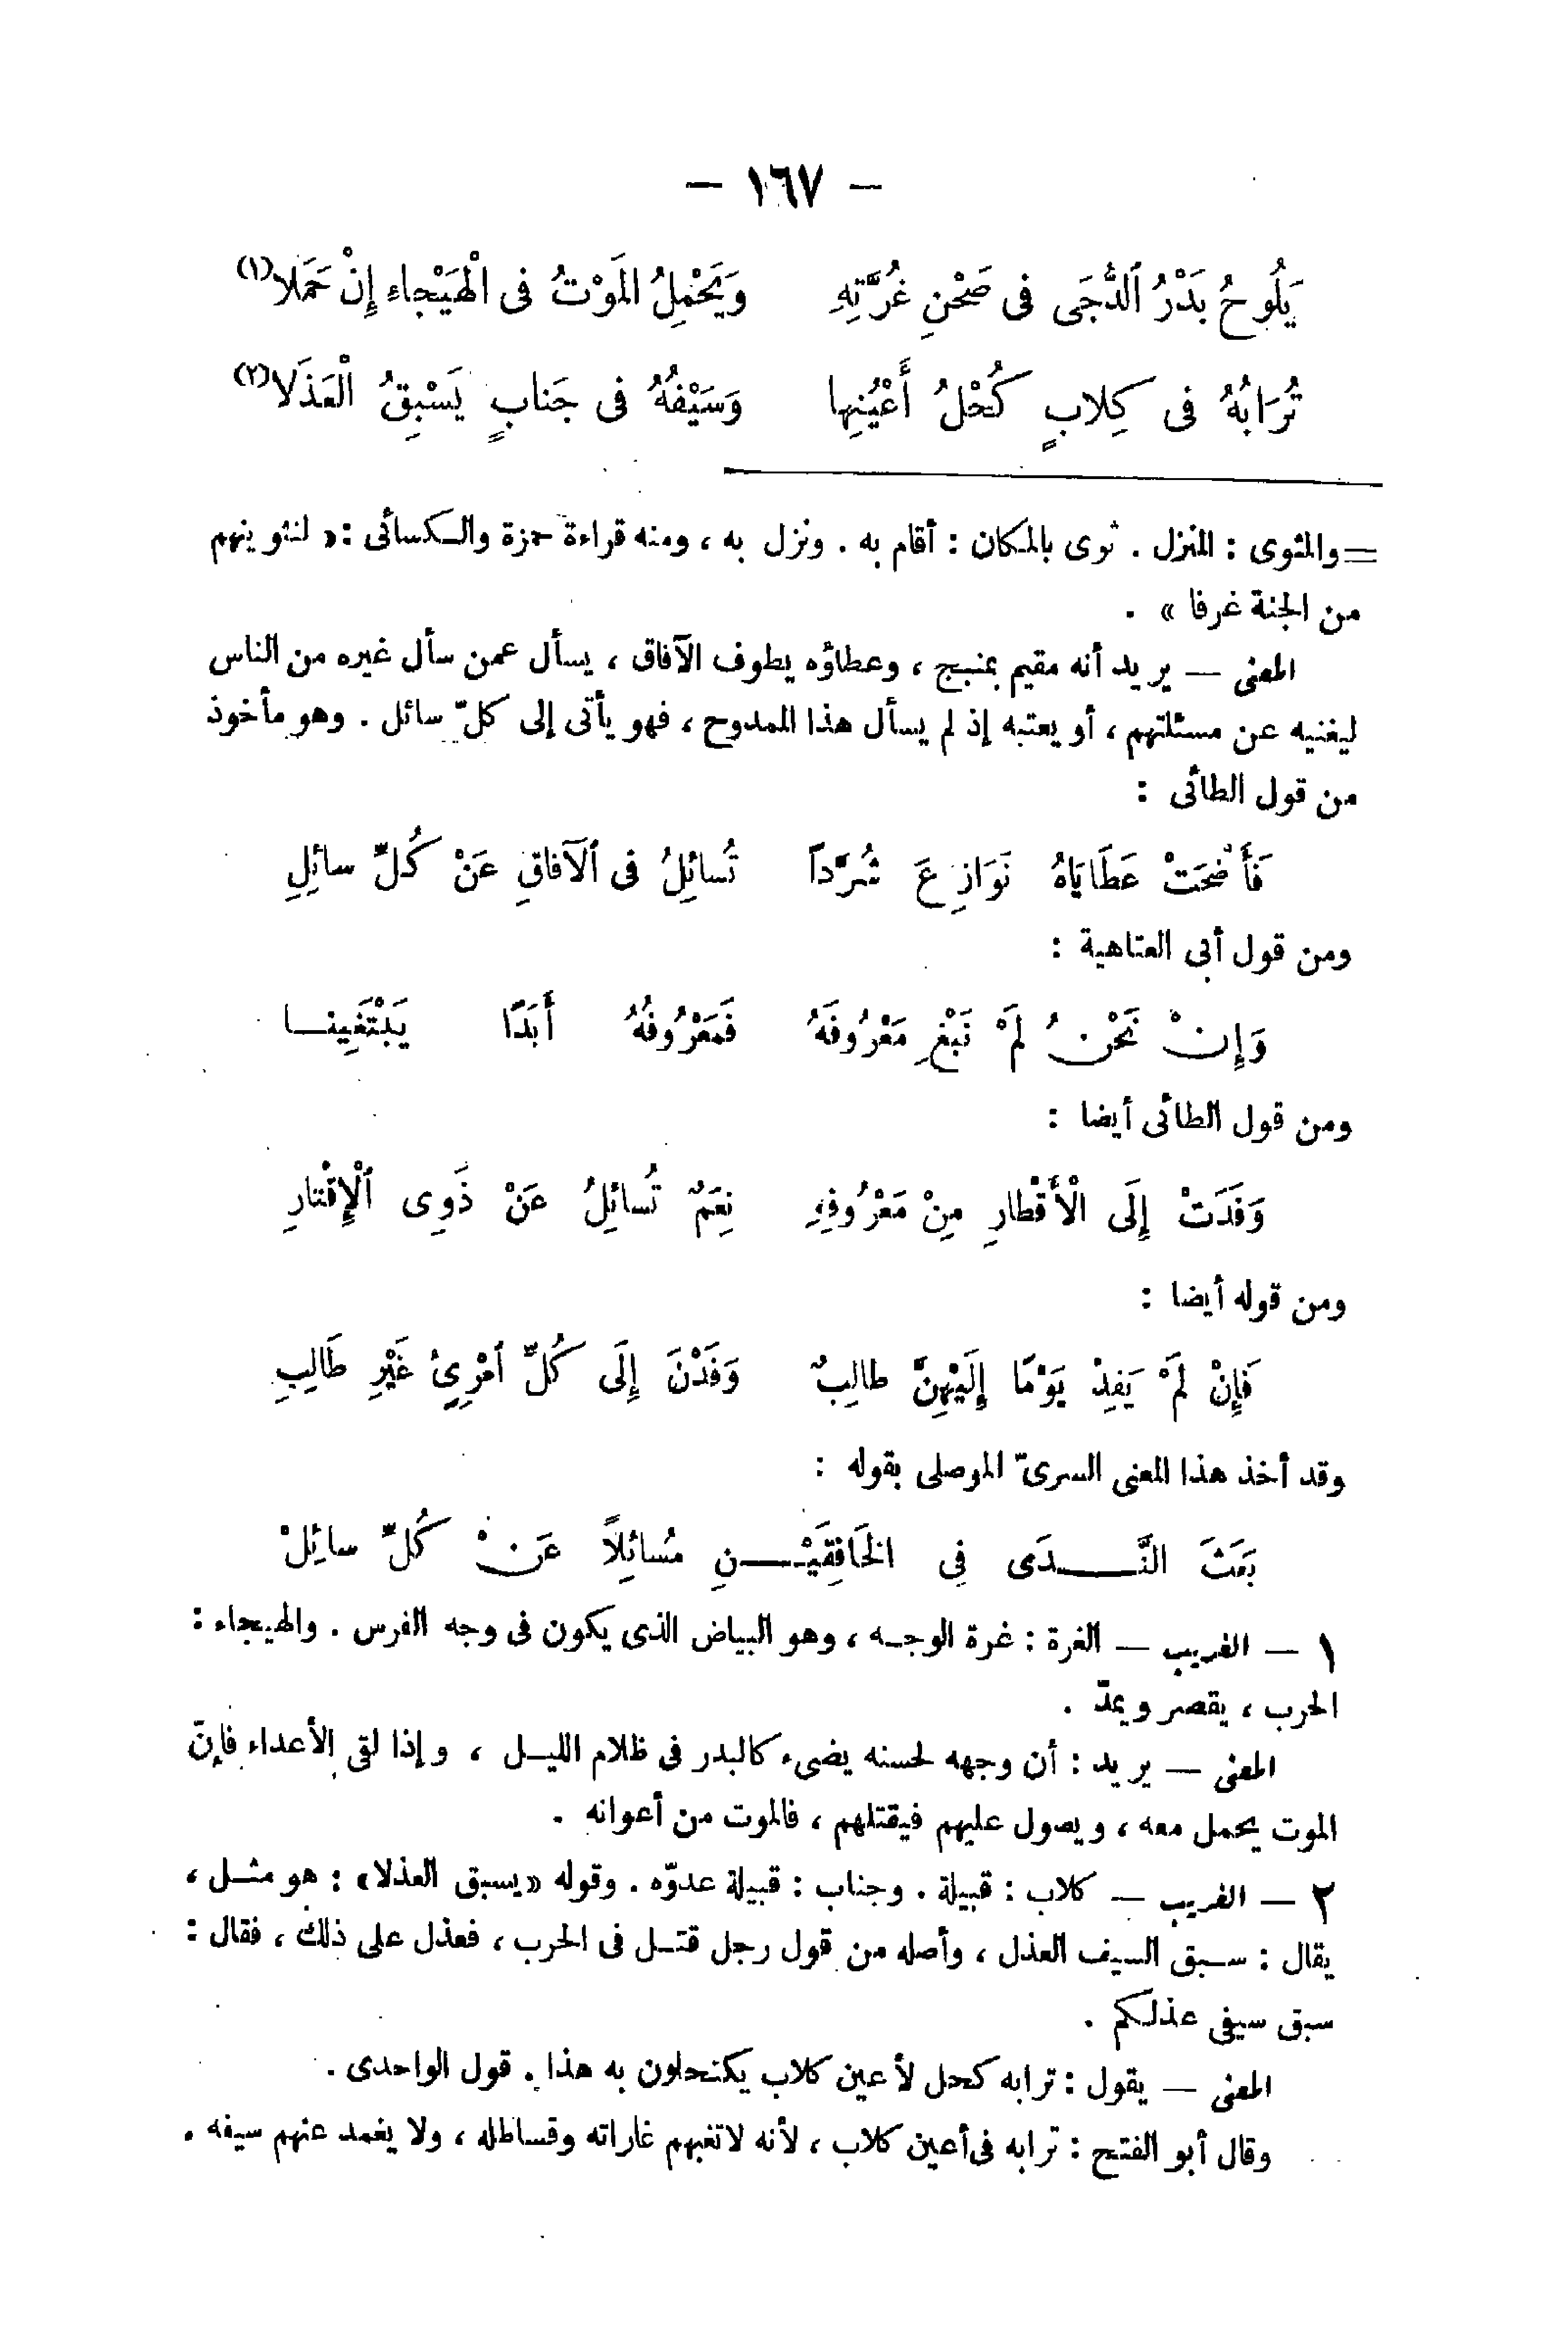 — ١٦٧ —
يَلُوحُ بَدْرُ ٱلدُّجَى فى صَحْنِ غُرَّتِهِ وَيَحْمِلُ المَوْتُ فى الْهَيْجاءِ إِنْ حَمَلا(١)
تُرَابُهُ فى كِلابٍ كُحْلُ أَعْيُنِها وَسَيْفُهُ فى جَنابٍ يَسْبِقُ الْعَذَلا(٢)
= والمثوى : المنزل . ثوى بالمكان : أقام به . ونزل به ، ومنه قراءة حمزة والكسائى : « لنثوينهم
من الجنة غرفا » .
المعنى — يريد أنه مقيم بمنبج ، وعطاؤه يطوف الآفاق ، يسأل عمن سأل غيره من الناس
ليغنيه عن مسئلتهم ، أو يعتبه إذ لم يسأل هذا الممدوح ، فهو يأتى إلى كلّ سائل . وهو مأخوذ
من قول الطائى :
فَأَضْحَتْ عَطَايَاهُ نَوَازِعَ شُرَّداً تُسائِلُ فى ٱلآفاقِ عَنْ كُلِّ سائِلِ
ومن قول أبى العتاهية :
وَإِنْ نَحْنُ لَمْ نَبْغِ مَعْرُوفَهُ فَمَعْرُوفُهُ أَبَدًا يَبْتَغِينا
ومن قول الطائى أيضا :
وَفَدَتْ إِلَى الْأَقْطارِ مِنْ مَعْرُوفِهِ نِعَمٌ تُسائِلُ عَنْ ذَوِى ٱلْإِقْتارِ
ومن قوله أيضا :
فَإِنْ لَمْ يَفِدْ يَوْمًا إِلَيْهِنَّ طالِبٌ وَفَدْنَ إِلَى كُلِّ ٱمْرِئٍ غَيْرِ طَالِبِ
وقد أخذ هذا المعنى السرىّ الموصلى بقوله :
بَعَثَ النَّدَى فِى الخَافِقَيْنِ مُسائِلاً عَنْ كُلِّ سائِلْ
١ — الغريب — الغرة : غرة الوجه ، وهو البياض الذى يكون فى وجه الفرس . والهيجاء :
الحرب ، يقصر ويمدّ .
المعنى — يريد : أن وجهه لحسنه يضىء كالبدر فى ظلام الليل ، وإذا لقى الأعداء فإنّ
الموت يحمل معه ، ويصول عليهم فيقتلهم ، فالموت من أعوانه .
٢ — الغريب — كلاب : قبيلة . وجناب : قبيلة عدوّه . وقوله « يسبق العذلا » : هو مثل ،
يقال : سبق السيف العذل ، وأصله من قول رجل قتل فى الحرب ، فعذل على ذلك ، فقال :
سبق سيفى عذلكم .
المعنى — يقول : ترابه كحل لأعين كلاب يكتحلون به هذا . قول الواحدى .
وقال أبو الفتح : ترابه فى أعين كلاب ، لأنه لاتغبهم غاراته وقساطله ، ولا يغمد عنهم سيفه .